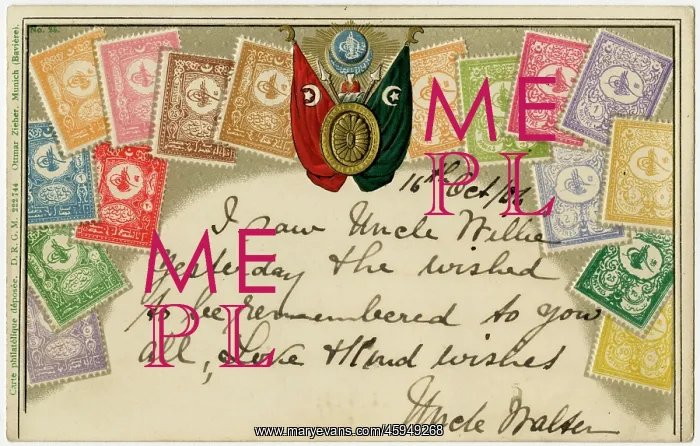 No. 26.
Carte philatélique déposée. D. R. G. M. 222744 Ottmar Zieher, Munich (Bavière).
ME
PL
16th Oct/06
I saw Uncle Willie
yesterday & he wished
to be remembered to you
all, Love & kind wishes
Uncle Walter
ME
PL
www.maryevans.com/45949268